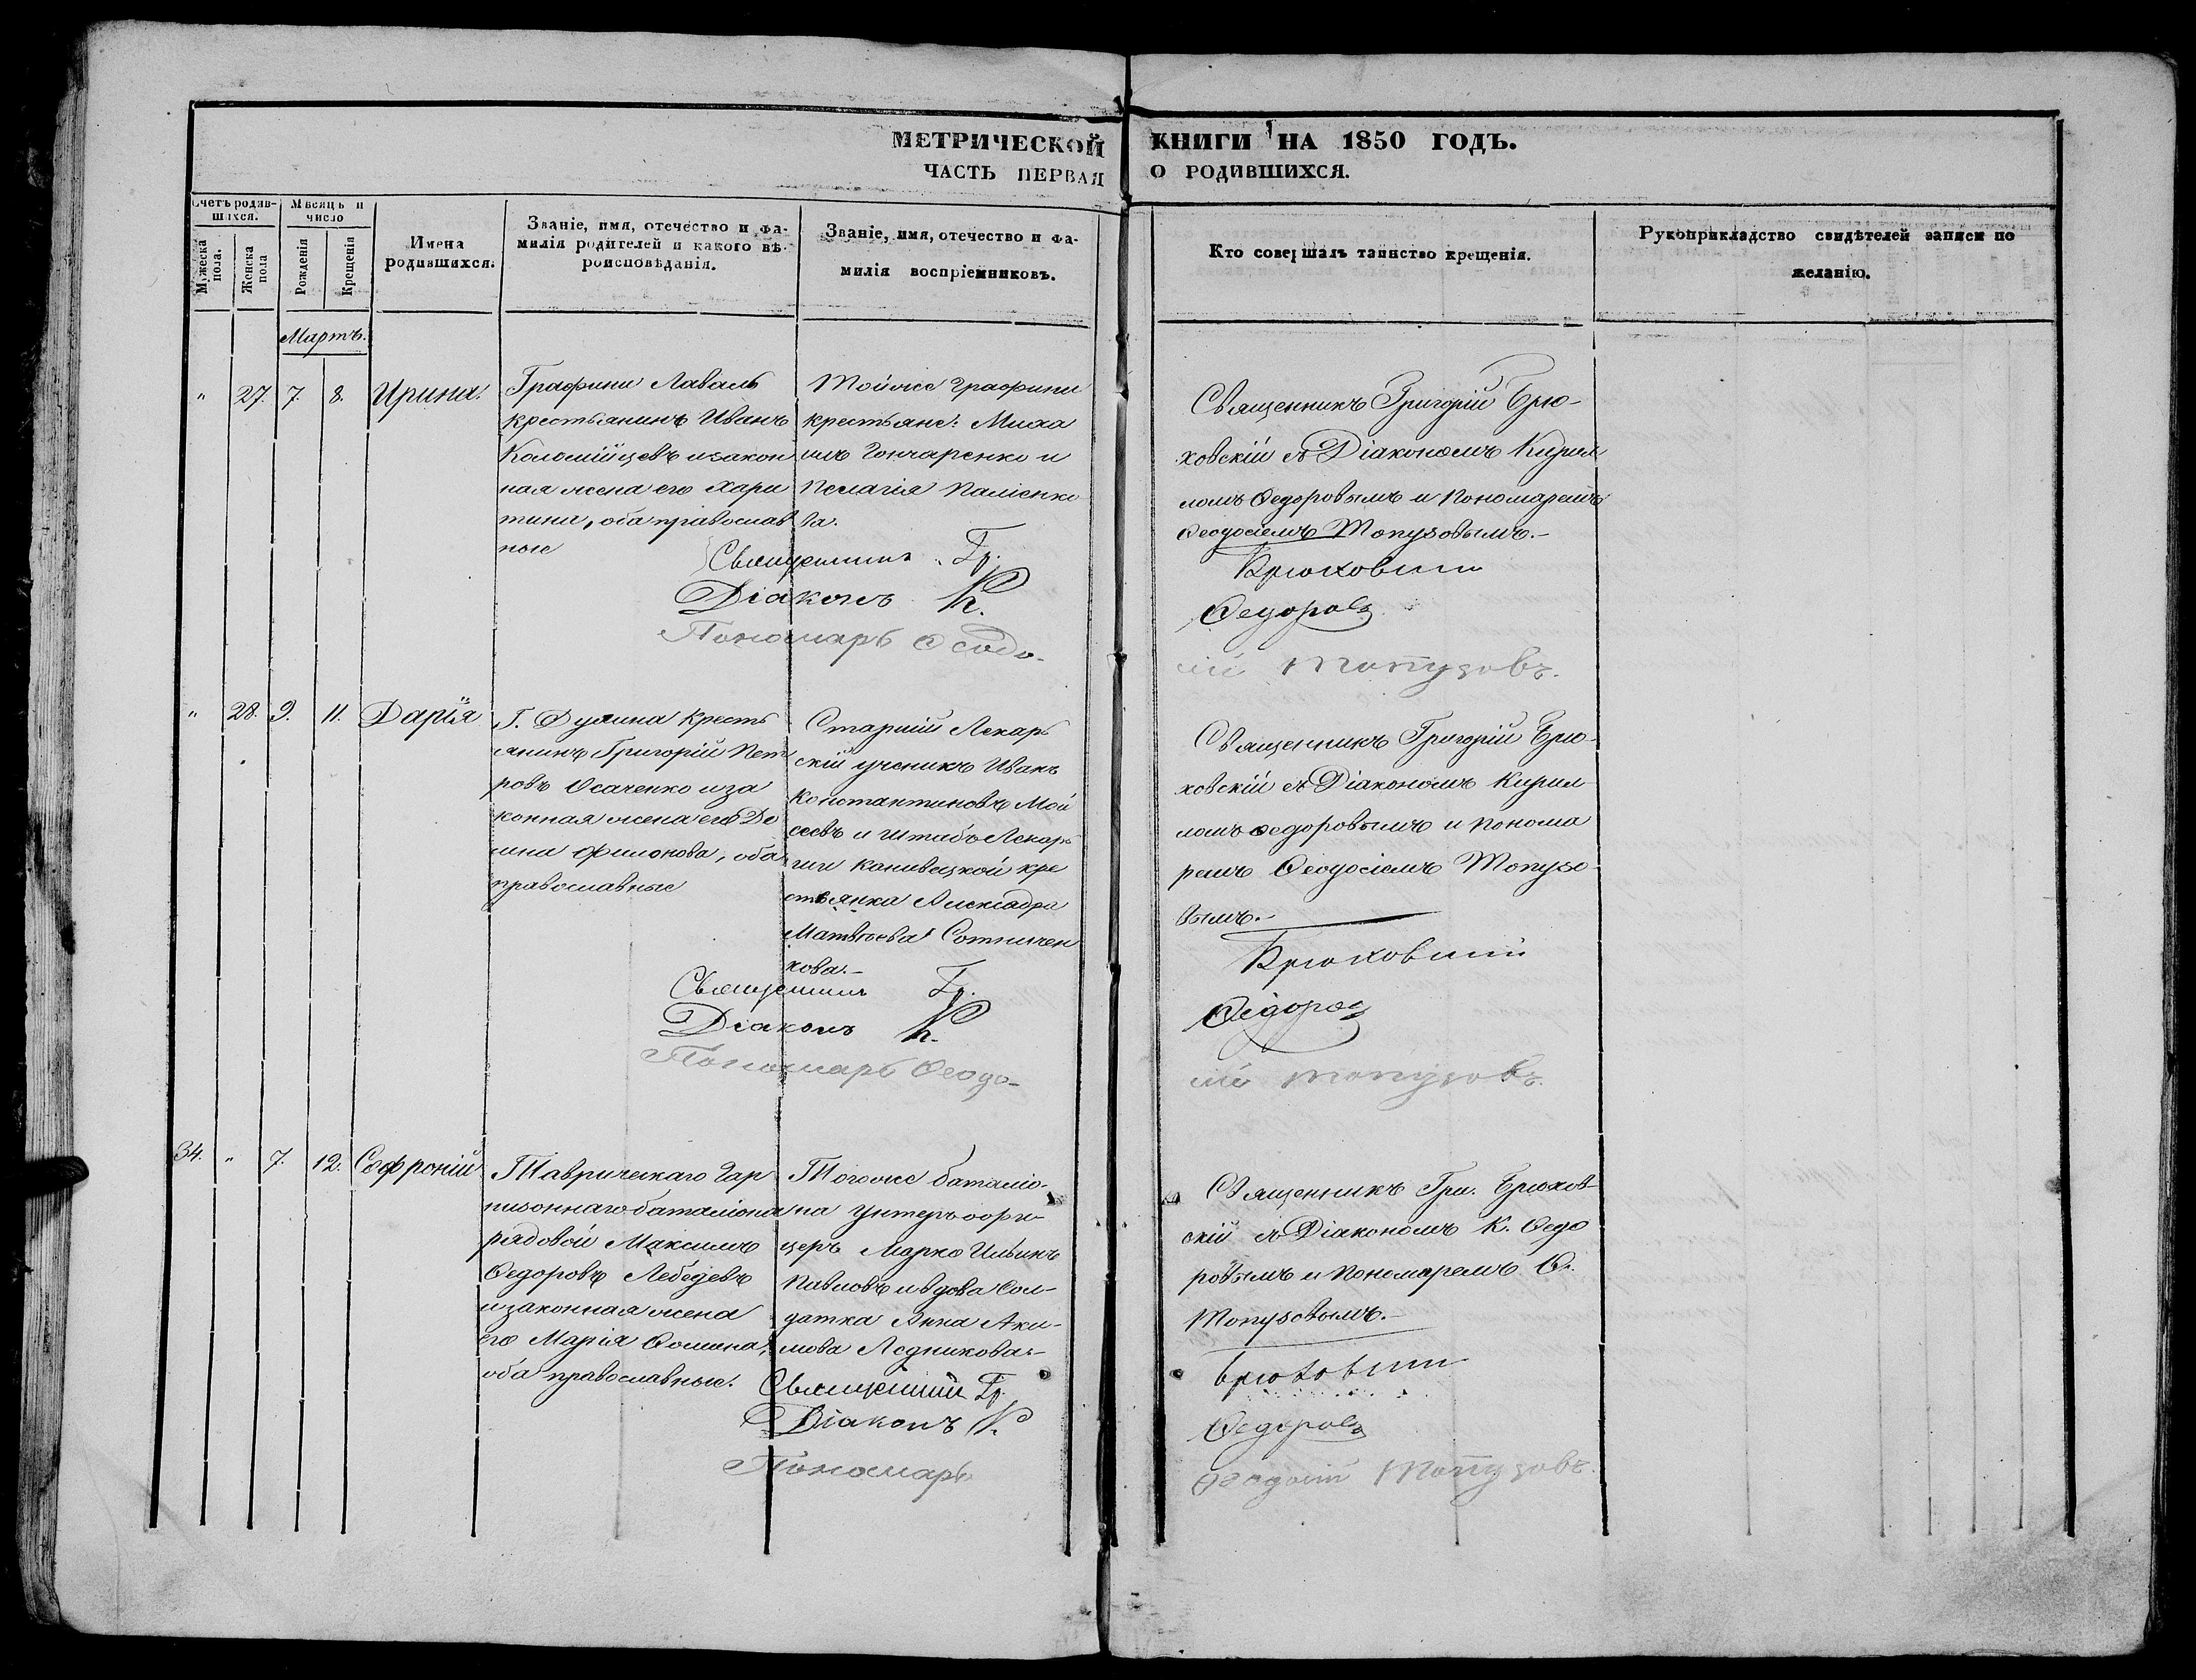 МЕТРИЧЕСКОЙ КНИГИ НА 1850 ГОДЪ.
ЧАСТЬ ПЕРВАЯ О РОДИВШИХСЯ.
Счетъ родившихся.
Мужеска пола.
Женска пола
Мѣсяцъ и число
Рожденія
Крещенія
Имена родившихся.
Званіе, имя, отечество и фа-
милія родителей и какого вѣ-
роисповѣданія.
Званіе, имя, отечество и фа-
милія воспріемниковъ.
Кто совершалъ таинство крещенія.
Рукоприкладство свидѣтелей записи по
желанію.
Мартъ.
" 27. 7. 8. Ирина.
Графини Лаваль
крестьянинъ Иванъ
Коломійцевъ и закон
ная жена его Хари
тина, оба православ
ные
Тойже Графини
крестьяне: Миха
илъ Гончаренко и
Пелагія Паліенко
ва.
Священникъ Григорій Брю-
ховскій съ Діакономъ Кирил
ломъ Ѳедоровымъ и Пономаремъ
Ѳеодосіемъ Топузовымъ.-
Священникъ Гр. Брюховскій
Діаконъ К. Ѳедоровъ
Пономарь Ѳеодо-
сій Топузовъ.
" 28. 9. 11. Дарія
Г. кресть
янинъ Григорій Пет
ровъ Осаченко и за
конная жена его До
мна Филонова, оба
православные
Старшій Лекар
скій ученикъ Иванъ
Константиновъ Мой
сеевъ и штабъ Лекар
ши Каневецкой кре
стьянка Александра
Матвѣева Сотничен
кова.-
Священникъ Григорій Брю-
ховскій съ Діакономъ Кирил
ломъ Ѳедоровымъ и понома
ремъ Ѳеодосіемъ Топузо-
вымъ.-
Священникъ Гр. Брюховскій
Діаконъ К. Ѳедоровъ
Пономарь Ѳеодо-
сій Топузовъ.
34. " 7. 12. Софроній
Таврическаго Гар
низоннаго баталіона
рядовой Максимъ
Ѳедоровъ Лебедевъ
и законная жена
его Марія Ѳомина,
оба православные.
Тогоже баталіо-
на Унтеръ офи-
церъ Марко Ильинъ
Павловъ и вдова Сол-
датка Анна Аки-
мова Ледникова.-
Священникъ Гри. Брюхов-
скій съ Діакономъ К. Ѳедо
ровымъ и Пономаремъ Ѳ.
Топузовымъ.-
Священникъ Гр. Брюховскій
Діаконъ К. Ѳедоровъ
Пономарь Ѳеодосій Топузовъ.